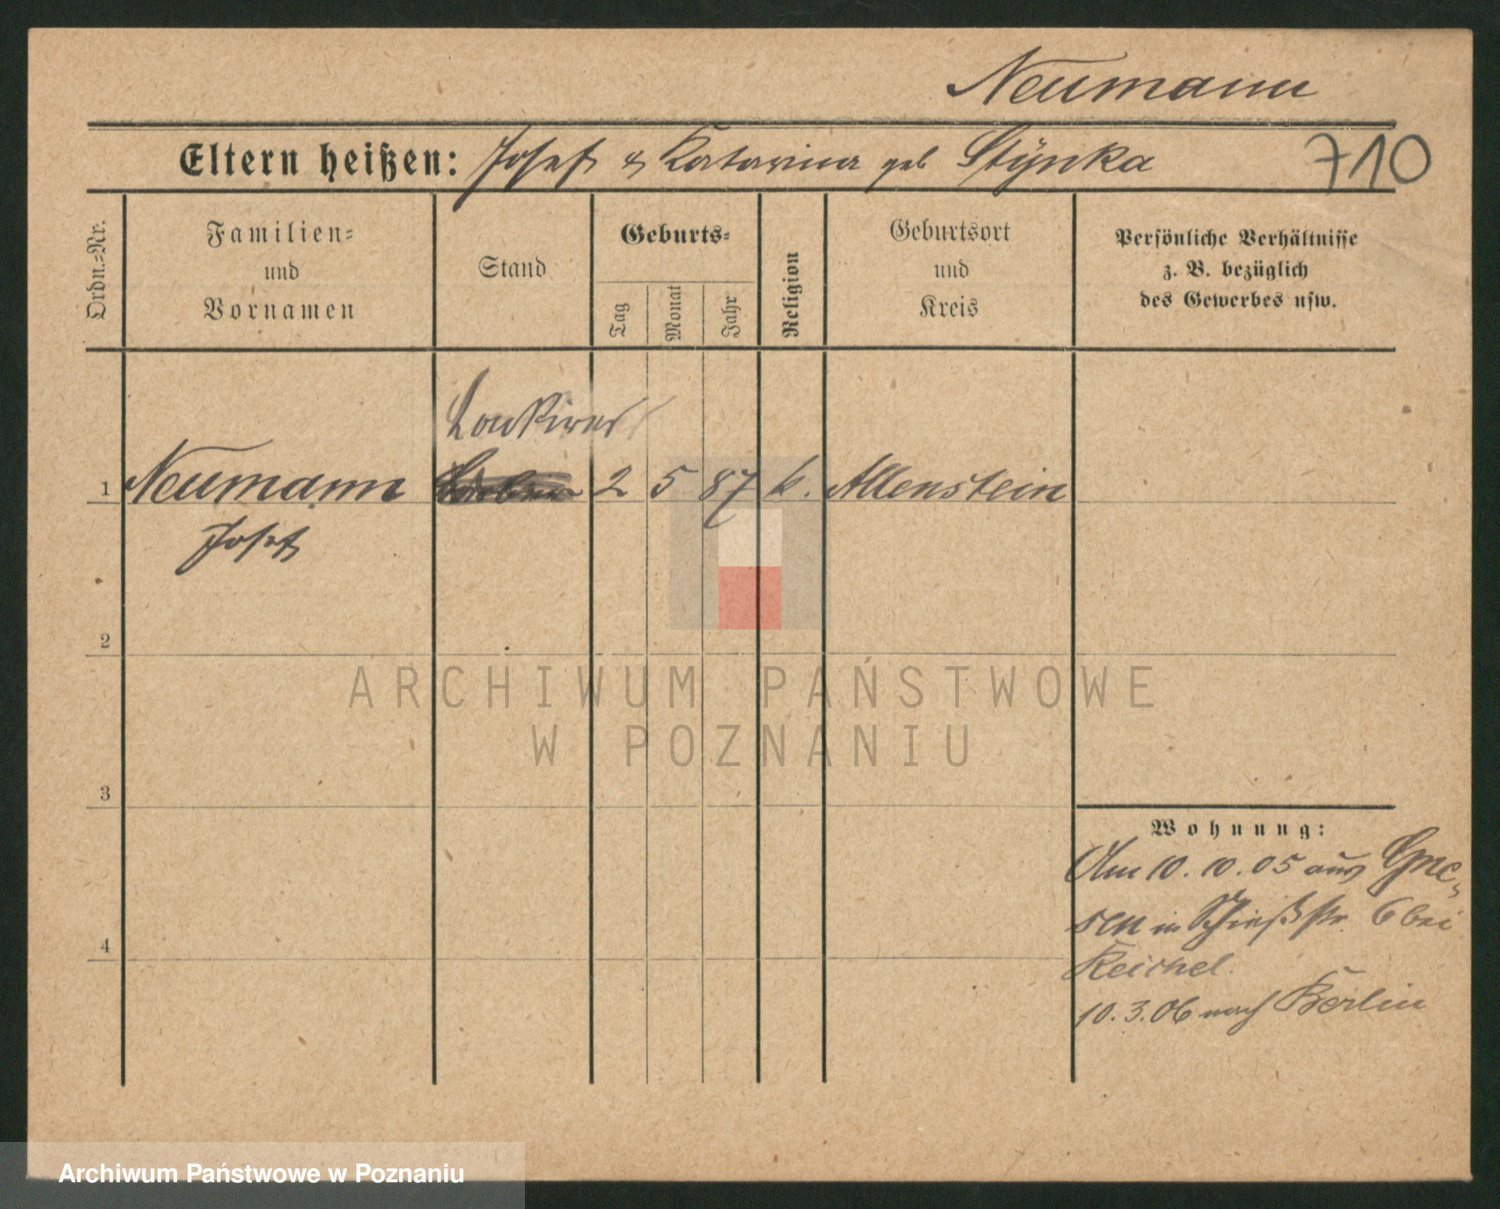 Neumann
Eltern heißen: Josef & Katarina geb Stÿnka
710
Ordn.=Nr.
Familien=
und
Vornamen
Stand
Geburts=
Tag
Monat
Jahr
Religion
Geburtsort
und
Kreis
Persönliche Verhältnisse
z. B. bezüglich
des Gewerbes usw.
1 Neumann 2 5 87 k. Allenstein
Josef
2
3
4
Wohnung:
Am 10. 10. 05 aus Gne-
sen in Schießstr. 6 bei
Reichel.
10. 3. 06 nach Berlin
ARCHIWUM PAŃSTWOWE
W POZNANIU
Archiwum Państwowe w Poznaniu